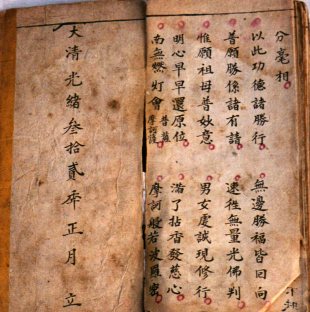 分毫相
以此功德諸勝行　無邊勝福皆回向
普願勝係諸有請　速往無量光佛刹
惟願祖母普妙意　男女虔誠現修行
明心早早還原位　滿了拈香發慈心
南無燃灯會普薩摩訶薩　摩訶般若波羅蜜
大清光緒叁拾貳年正月 立